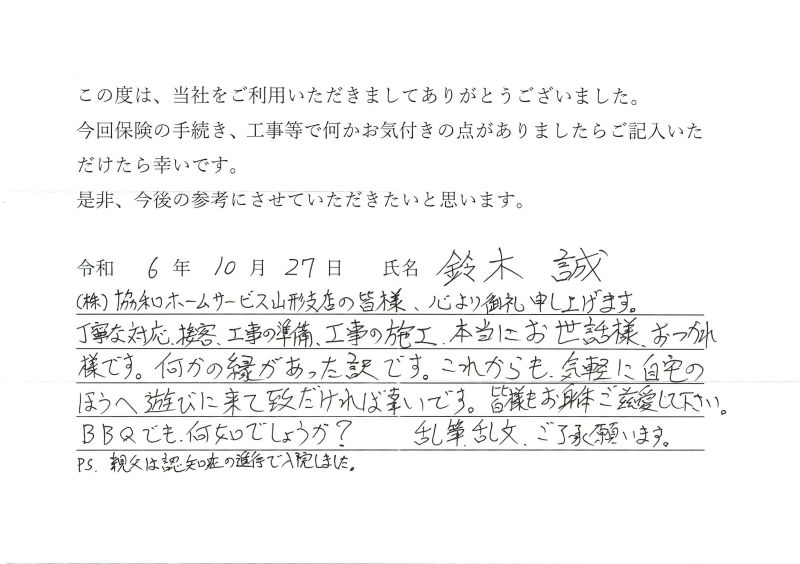 この度は、当社をご利用いただきましてありがとうございました。
今回保険の手続き、工事等で何かお気付きの点がありましたらご記入いた
だけたら幸いです。
是非、今後の参考にさせていただきたいと思います。
令和 6 年 10 月 27 日 氏名 鈴木 誠
(株)協和ホームサービス山形支店の皆様、心より御礼申し上げます。
丁寧な対応、接客、工事の準備、工事の施工、本当にお世話様、おつかれ
様です。何かの縁があった訳です。これからも、気軽に自宅の
ほうへ遊びに来て致だければ幸いです。皆様もお身体ご慈愛して下さい。
BBQでも、何如でしょうか? 乱筆、乱文、ご了承願います。
PS. 親父は認知症の進行で入院しました。